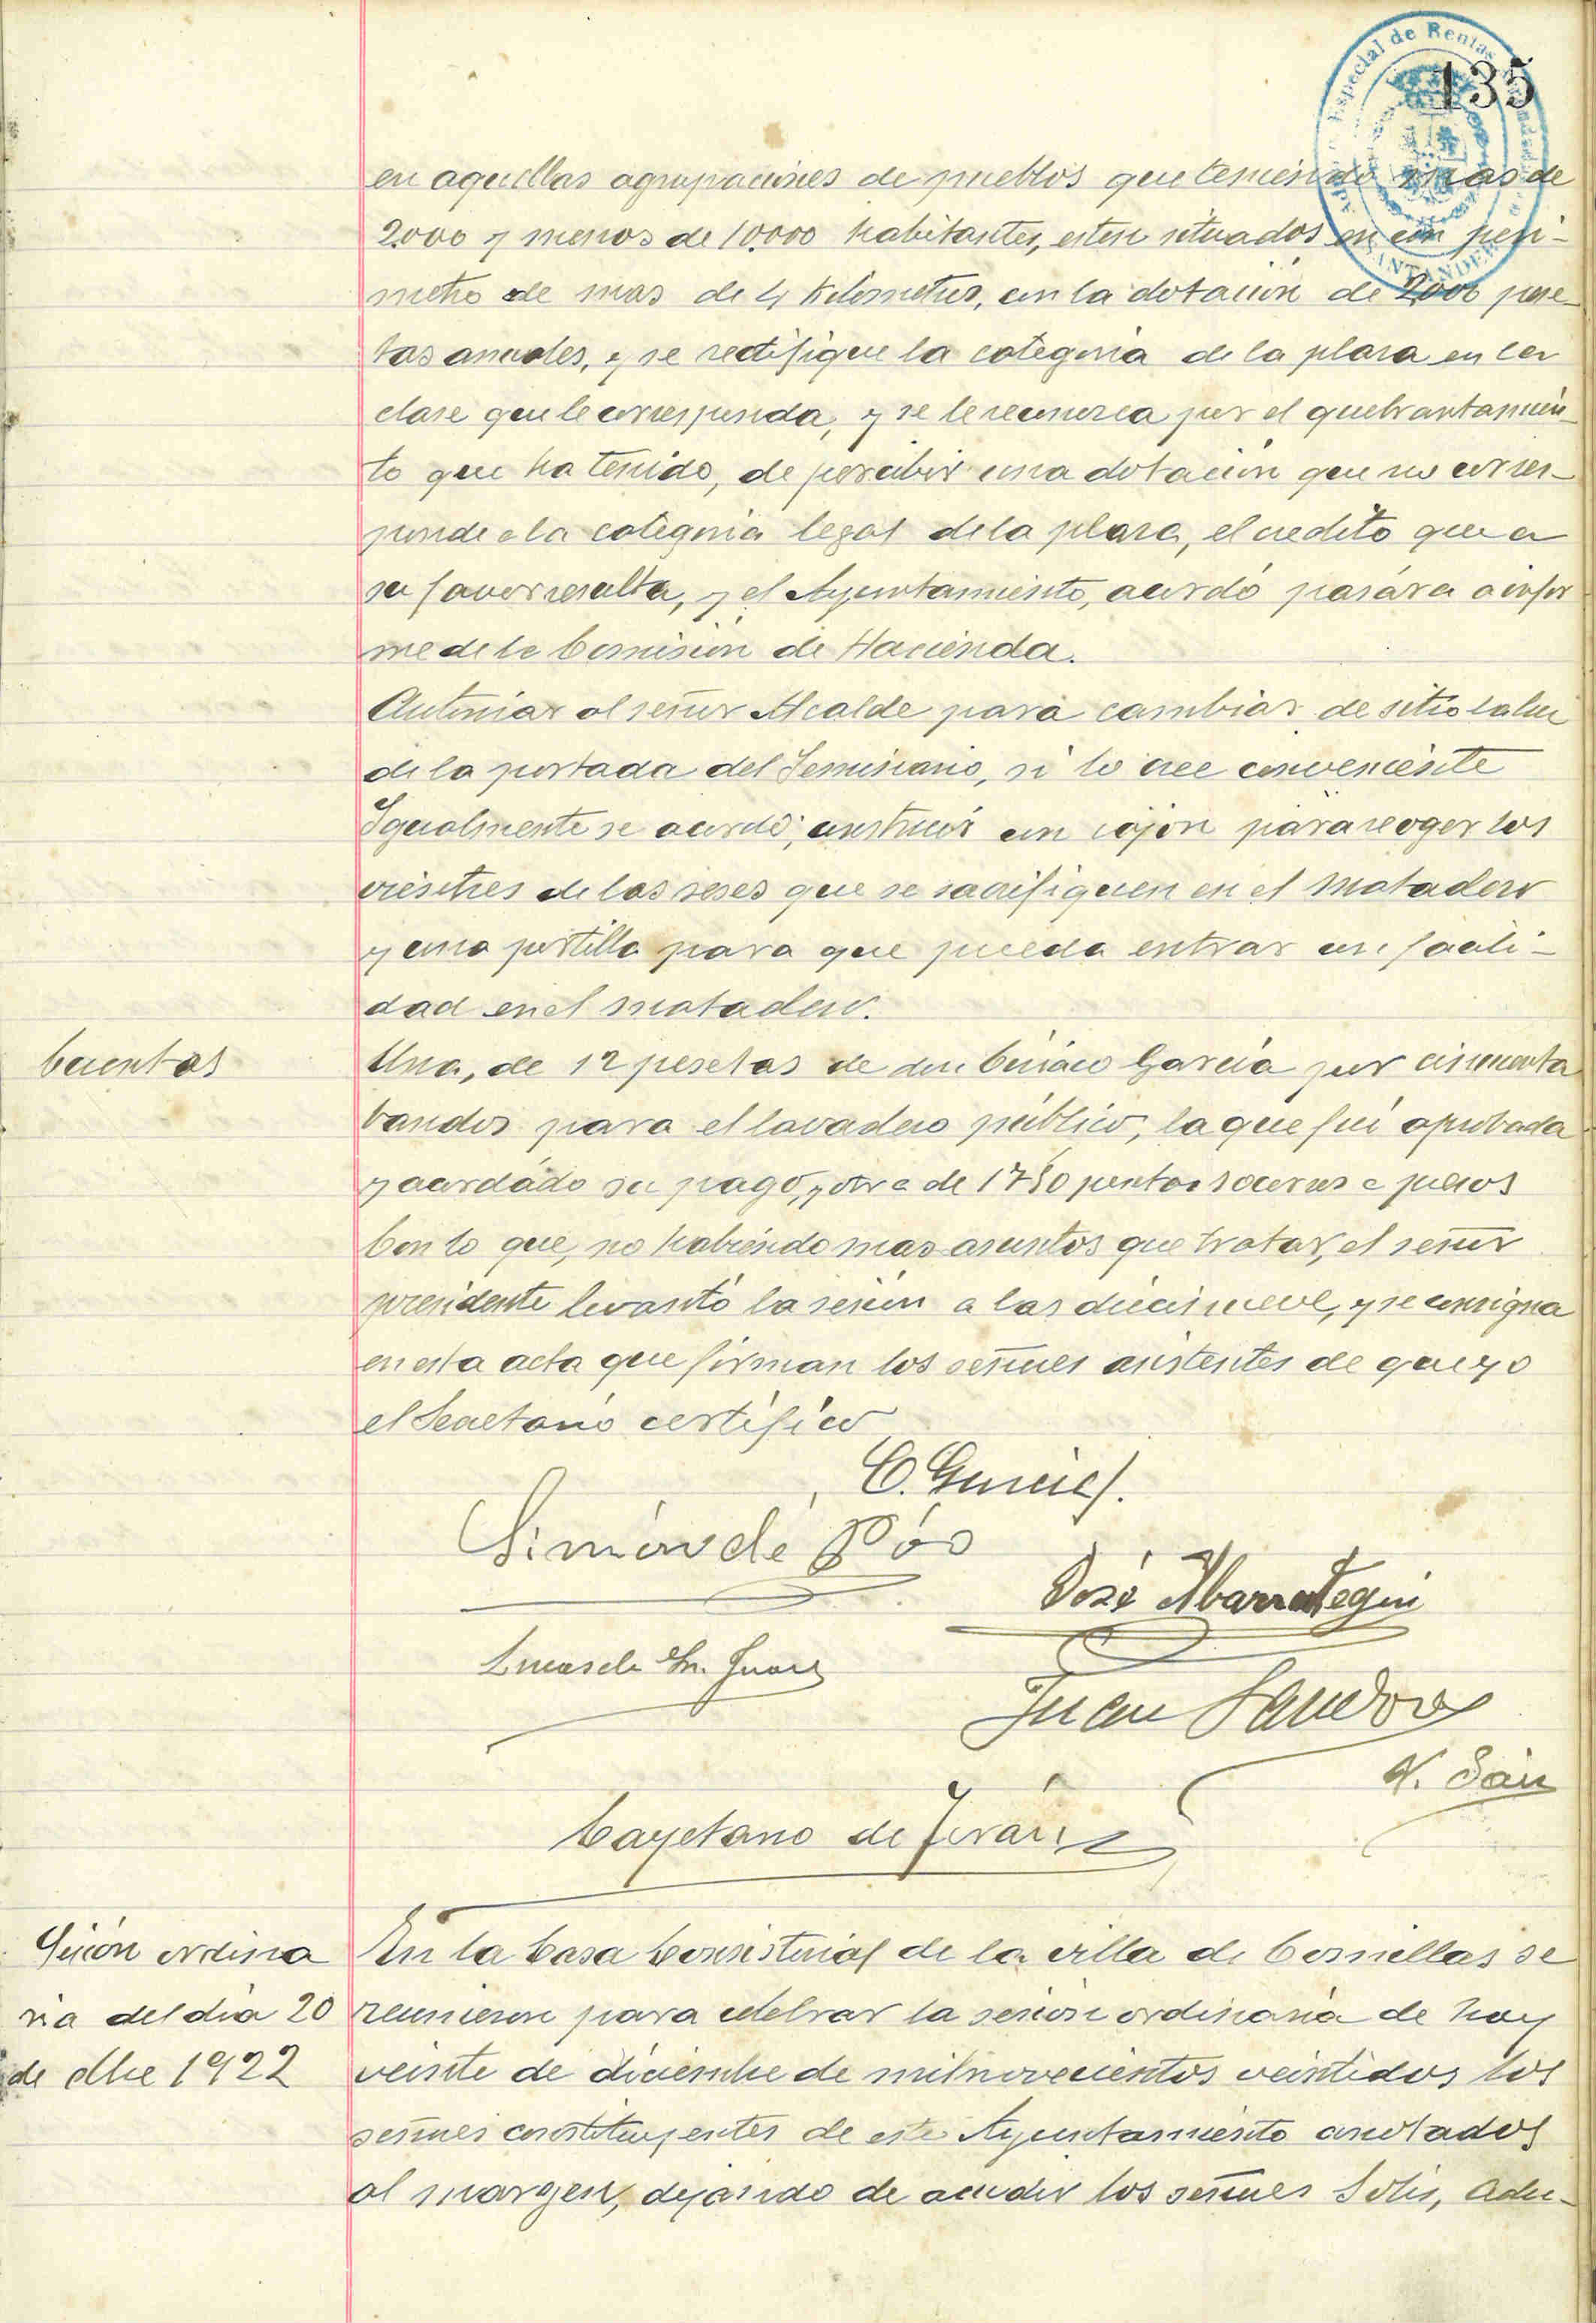 135
Especial de Rentas
SANTANDER
en aquellas agrupaciones de pueblos que teniendo mas de
2000 y menos de 10.000 habitantes, esten situados en un peri-
metro de mas de 4 Kilometros, con la dotación de 2.000 pese-
tas anuales, y se rectifique la categoria de la plaza en la
clase que le corresponda, y se le reconozca por el quebrantamien-
to que ha tenido, de percibir una dotación que no corres-
ponde a la categoria legal de la plaza, el credito que a
su favor resulta, y el Ayuntamiento, acordó pasára a infor
me de la Comisión de Hacienda.
Autorizar al señor Alcalde para cambiar de sitio la luz
de la portada del Seminario, si lo cree conveniente
Igualmente se acordó, construir un cajón para recoger los
vientres de las reses que se sacrifiquen en el matadero
y una portilla para que pueda entrar con facili-
dad en el matadero.
Cuentas
Una, de 12 pesetas de don Ciriaco García por
bandos para el lavadero público, la que fué aprobada
y acordádo su pago, y otra de
Con lo que, no habiendo mas asuntos que tratar, el señor
presidente levantó la sesión a las diecinueve, y se consigna
en esta acta que firman los señores asistentes de que yo
el Secretario certifico
Simón de
José Abarrategui
Lucas de
Juan
Cayetano de Terán
Sesión ordina
ria del dia 20
de Dbre 1922
En la Casa Consistorial de la villa de Comillas se
reunieron para celebrar la sesión ordinaria de hoy
veinte de diciembre de mil novecientos veintidos los
señores constituyentes de este Ayuntamiento anotados
al margen, dejando de acudir los señores Solis,